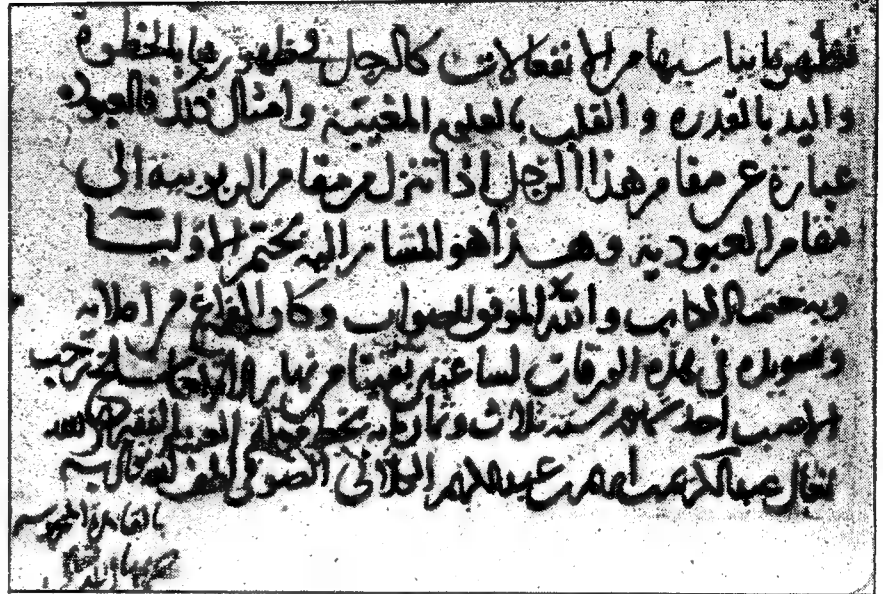 فتظهر بما يناسبها من الانفعالات كالرجل فظهورها بالخطوة
واليد بالقدرة و القلب بالعلوم المغيبة وامثال ذلك فالعبودية
عبارة عن مقام هذا الرجل اذا تنزل من مقام الربوبية الى
مقام العبودية وهذا هو المشار اليه بختم الاوليا
وبه ختم الكتاب والله الموفق للصواب وكان الفراغ من املائه
وتسويده في هذه الورقات لساعتين بقيتا من نهار الاثنين سلخ رجب
الاصب احد شهور سنة ثلاث وثمانمايه بخط العبد الفقير الى الله
تعالى عبد الكريم بن ابراهيم بن عبد الكريم الكيلاني الصوفي
بالقاهرة المحروسة